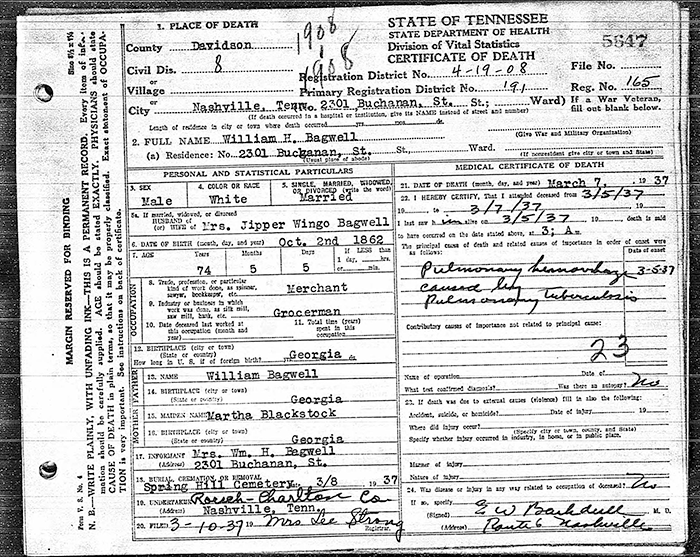 STATE OF TENNESSEE
STATE DEPARTMENT OF HEALTH
Division of Vital Statistics
CERTIFICATE OF DEATH
5647
1908
1908
1. PLACE OF DEATH
County Davidson
Civil Dis. 8
or
Village
or
City Nashville, Tenn. No. 2301 Buchanan, St. St.; Ward)
Registration District No. 4-19-08
Primary Registration District No. 191
File No.
Reg. No. 165
If a War Veteran,
fill out blank below.
(If death occurred in a hospital or institution, give its NAME instead of street and number)
Length of residence in city or town where death occurred yrs. mos. ds.
(Give War and Military Organization)
2. FULL NAME William H. Bagwell
(a) Residence: No. 2301 Buchanan, St. St. Ward.
(Usual place of abode)
(If nonresident give city or town and State)
PERSONAL AND STATISTICAL PARTICULARS
3. SEX
Male
4. COLOR OR RACE
White
5. SINGLE, MARRIED, WIDOWED,
OR DIVORCED (write the word)
Married
5a. If married, widowed, or divorced
HUSBAND of
(or) WIFE of Mrs. Jipper Wingo Bagwell
6. DATE OF BIRTH (month, day, and year) Oct. 2nd 1862
7. AGE
74 5 5
If LESS than
1 day, hrs.
or min.
OCCUPATION
8. Trade, profession, or particular
kind of work done, as spinner,
sawyer, bookkeeper, etc.
Merchant
9. Industry or business in which
work was done, as silk mill,
saw mill, bank, etc.
Grocerman
10. Date deceased last worked at
this occupation (month and
year)
11. Total time (years)
spent in this
occupation
12. BIRTHPLACE (city or town)
(State or country) Georgia
How long in U. S. if of foreign birth? yrs. mos. ds.
FATHER
13. NAME William Bagwell
14. BIRTHPLACE (city or town)
(State or country) Georgia
MOTHER
15. MAIDEN NAME Martha Blackstock
16. BIRTHPLACE (city or town)
(State or country) Georgia
17. INFORMANT Mrs. Wm. H. Bagwell
(Address) 2301 Buchanan, St.
18. BURIAL, CREMATION OR REMOVAL
Spring Hill Cemetery 3/8 1937
19. UNDERTAKER Roesch-Charlton Co
(Address) Nashville, Tenn.
20. FILED 3-10-37 Mrs Lee Strong
Registrar.
MEDICAL CERTIFICATE OF DEATH
21. DATE OF DEATH (month, day, and year) March 7, 1937
22. I HEREBY CERTIFY, That I attended deceased from 3/5/37
19 to 3/7/37 19
I last saw him alive on 3/5/37 19 death is said
to have occurred on the date stated above, at 3; A.
The principal cause of death and related causes of importance in order of onset were
as follows:
Date of onset
Pulmonary hemorrhage 3-5-37
caused by
Pulmonary tuberculosis
Contributory causes of importance not related to principal cause:
23
Name of operation Date of
What test confirmed diagnosis? Was there an autopsy? No
23. If death was due to external causes (violence) fill in also the following:
Accident, suicide, or homicide? Date of injury 19
Where did injury occur?
(Specify city or town, county, and State)
Specify whether injury occurred in industry, in home, or in public place.
Manner of injury
Nature of injury
24. Was disease or injury in any way related to occupation of deceased? No
If so, specify
(Signed) M. D.
(Address) Route 6 Nashville
MARGIN RESERVED FOR BINDING
N. B.—WRITE PLAINLY, WITH UNFADING INK—THIS IS A PERMANENT RECORD. Every item of infor-
mation should be carefully supplied. AGE should be stated EXACTLY. PHYSICIANS should state
CAUSE OF DEATH in plain terms, so that it may be properly classified. Exact statement of OCCUPA-
TION is very important. See instructions on back of certificate.
Form V. S. No. 4